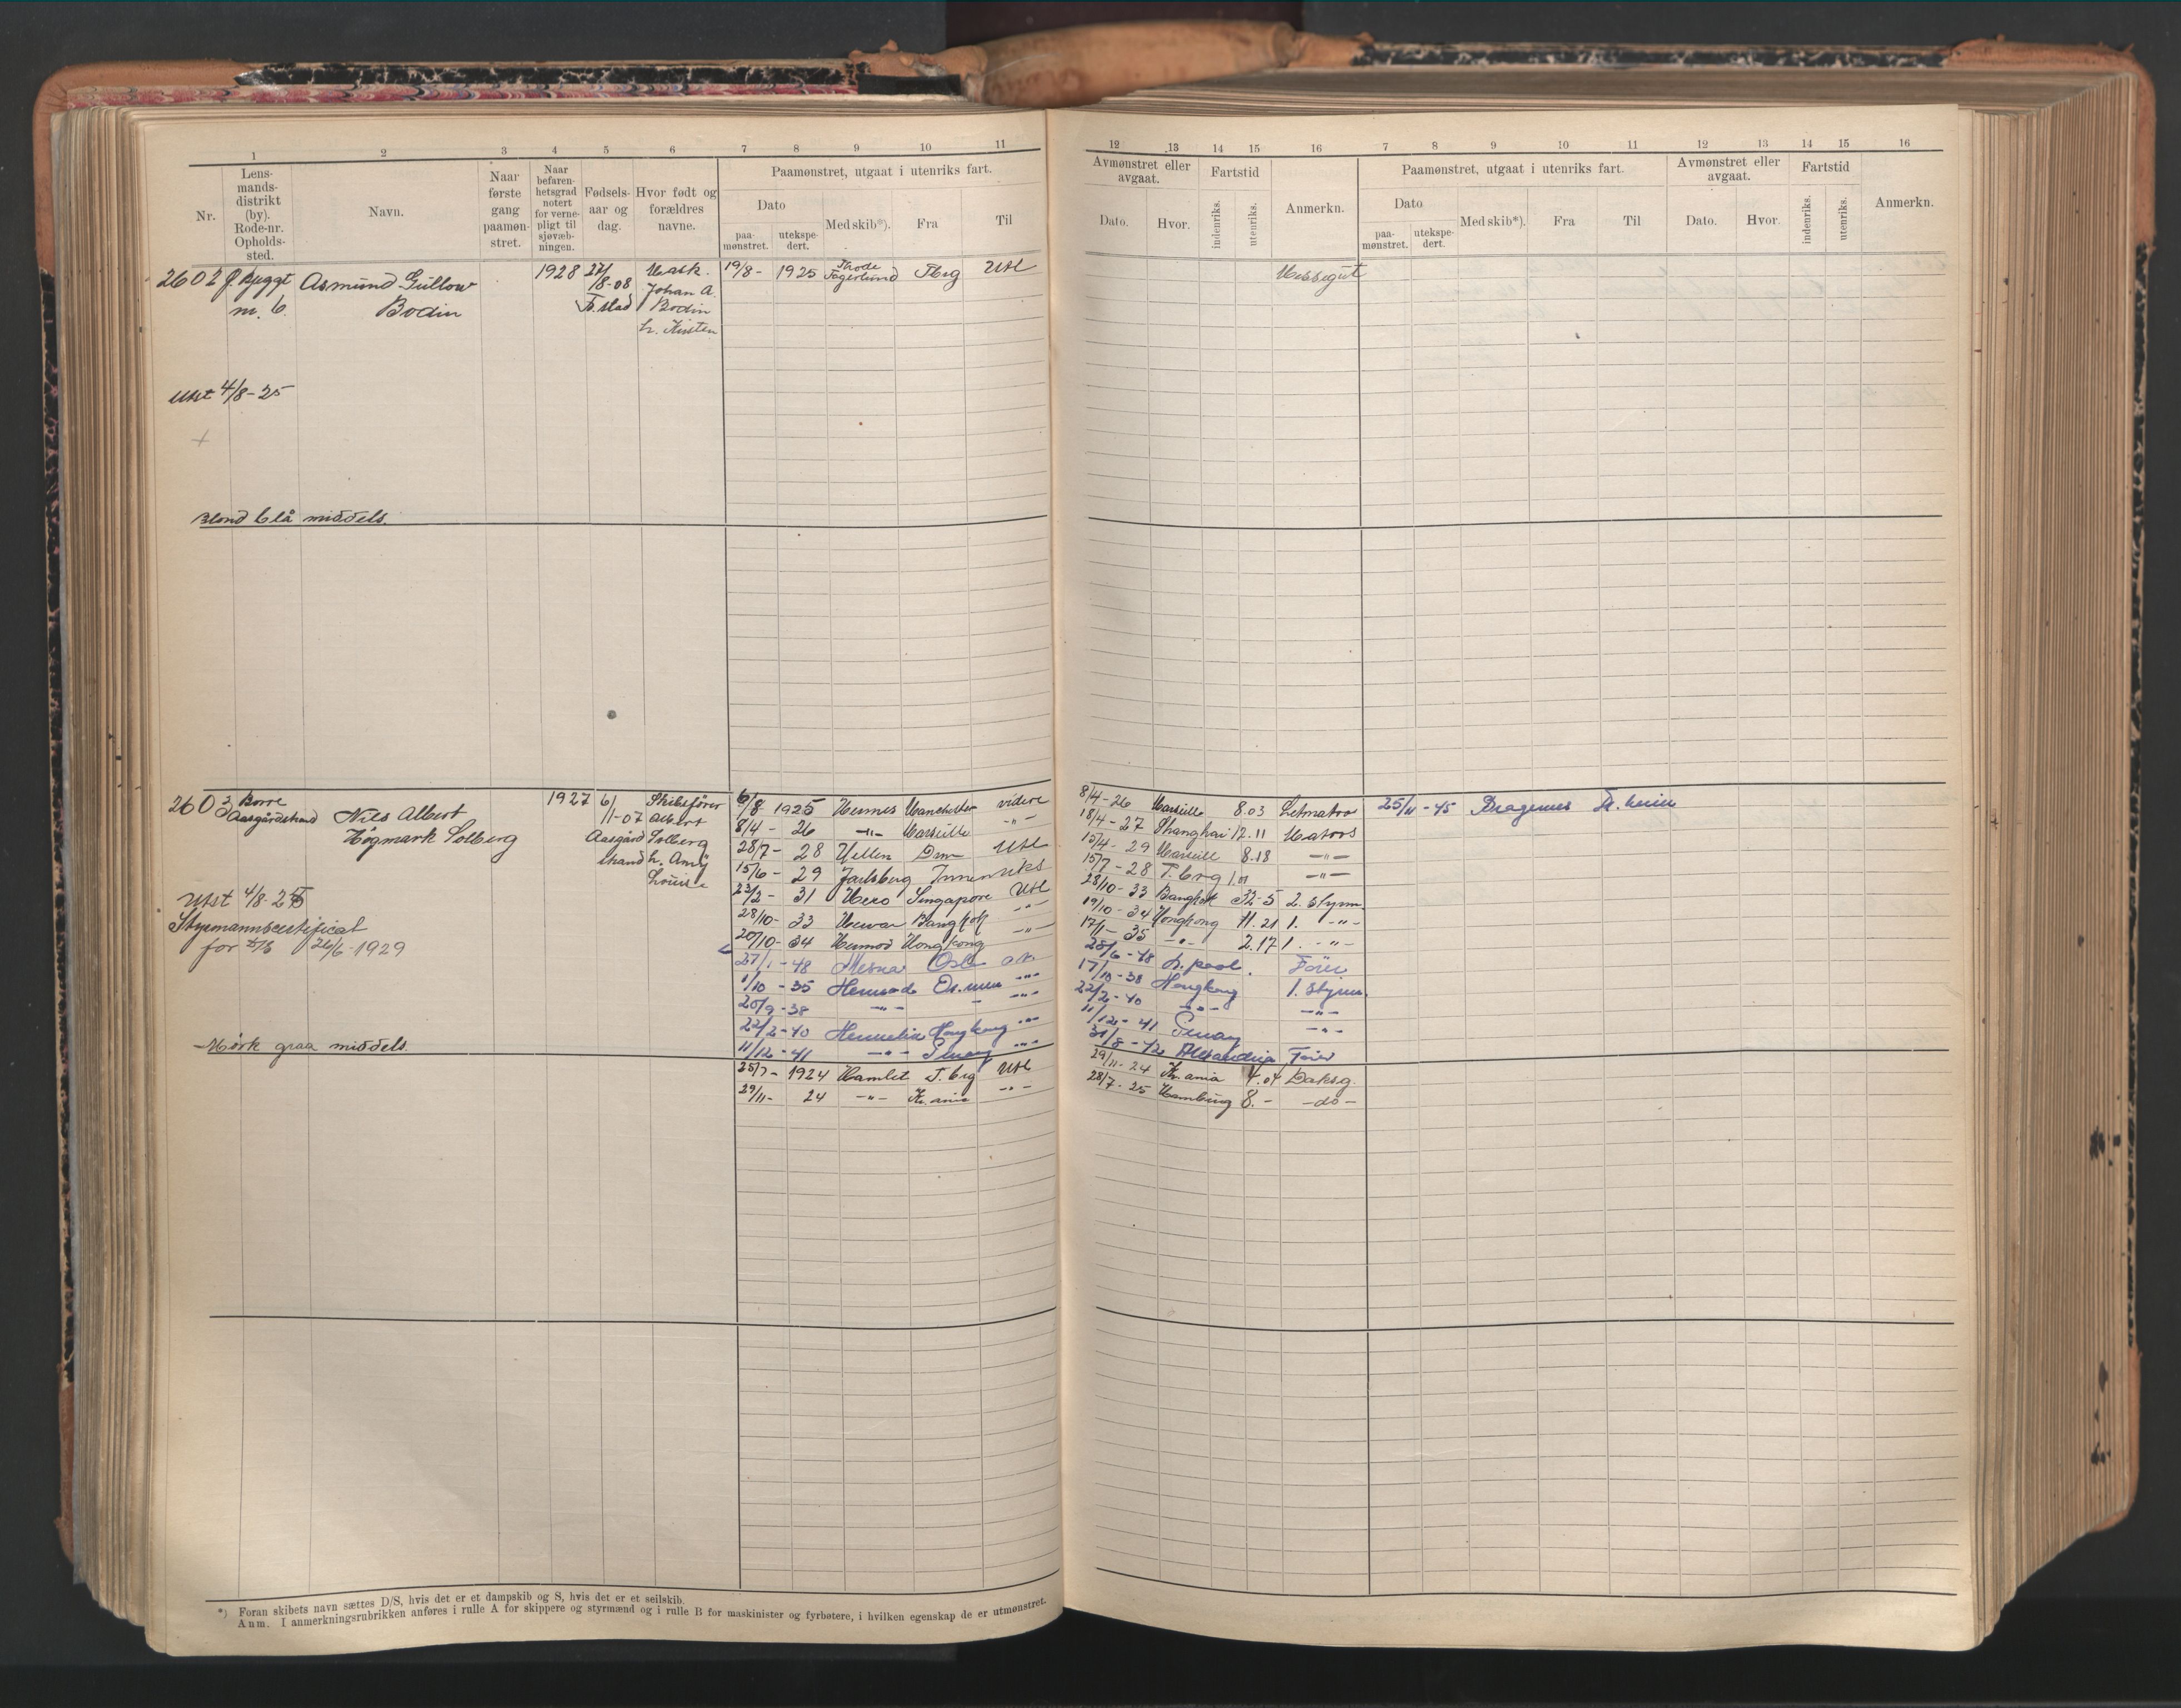 1 2 3 4 5 6 7 8 9 10 11
Nr.
Lens-
mands-
distrikt
(by).
Rode-nr.
Opholds-
sted.
Navn.
Naar
første
gang
paamøn-
stret.
Naar
befaren-
hetsgrad
notert
for verne-
pligt til
sjøvæb-
ningen.
Fødsels-
aar og
dag.
Hvor født og
forældres
navne.
Paamønstret, utgaat i utenriks fart.
Dato
paa-
mønstret.
utekspe-
dert.
Med skib*).
Fra
Til
2602 Asmund Gullow
Bodin
m. 6
1928 27/
/8-08
Mask.
Johan A.
Bodin
h. Kirsten
19/8- 1925 Thode
Fagerlund Tbrg Utl
Utst 4/8-25
Blond blå middels.
2603 Borre
Aasgårdstrand
Nils Albert
Høgmark Solberg
1927 6/
/1-07
Aasgård
strand
Skibsfører
Albert
Solberg
h. Amy
Louise
6/8 1925 Hermes Manchester videre
8/4- 26 -"- Marseille -"-
28/7- 28 Hellen Dm Utl
15/6- 29 Jarlsberg Innenriks
23/2- 31 Hero Singapore Utl
28/10- 33 Hewar Bangkok -"-
20/10- 34 Hermod Hongkong -"-
27/1-48 Mesna Oslo
1/10-35 Hermod -"-
20/9-38 -"- -"-
22/2-40 Hermelin Hongkong -"-
11/12-41 -"- Penang -"-
25/7- 1924 Hamlet T.brg Utl
29/11- 24 -"- Kr.ania -"-
Utst 4/8-25
Styrmannscertifical
for 26/6-1929
Mørk graa middels
*) Foran skibets navn sættes D/S, hvis det er et dampskib og S, hvis det er et seilskib.
Anm. I anmerkningsrubrikken anføres i rulle A for skippere og styrmænd og i rulle B for maskinister og fyrbøtere, i hvilken egenskap de er utmønstret.
12 13 14 15 16 7 8 9 10 11 12 13 14 15 16
Avmønstret eller
avgaat.
Dato.
Hvor.
Fartstid
indenriks.
utenriks.
Anmerkn.
Paamønstret, utgaat i utenriks fart.
Dato
paa-
mønstret.
utekspe-
dert.
Med skib*).
Fra
Til
Avmønstret eller
avgaat.
Dato.
Hvor.
Fartstid
indenriks.
utenriks.
Anmerkn.
Messegut
8/4-26 Marseille 8.03 Letmatros 25/11-45 Bragernes
18/4-27 Shanghai 12.11 Matros
15/4-29 Marseille 8.18 -"-
15/7-28 T.brg -"-
28/10-33 Bangkok 32-5 2. styrm.
19/10-34 Hongkong 11.21 1. -"-
17/11-35 -"- 2.17 1. -"-
28/6-48 L.pool. Fører
17/10-38 Hongkong 1. styrm.
22/2-40 -"- -"-
11/12-41 Penang -"-
31/8-42 Alexandria Fører
29/11-24 Kr.ania 4.04 Daksg.
28/7-25 Hamburg 8.- -do-